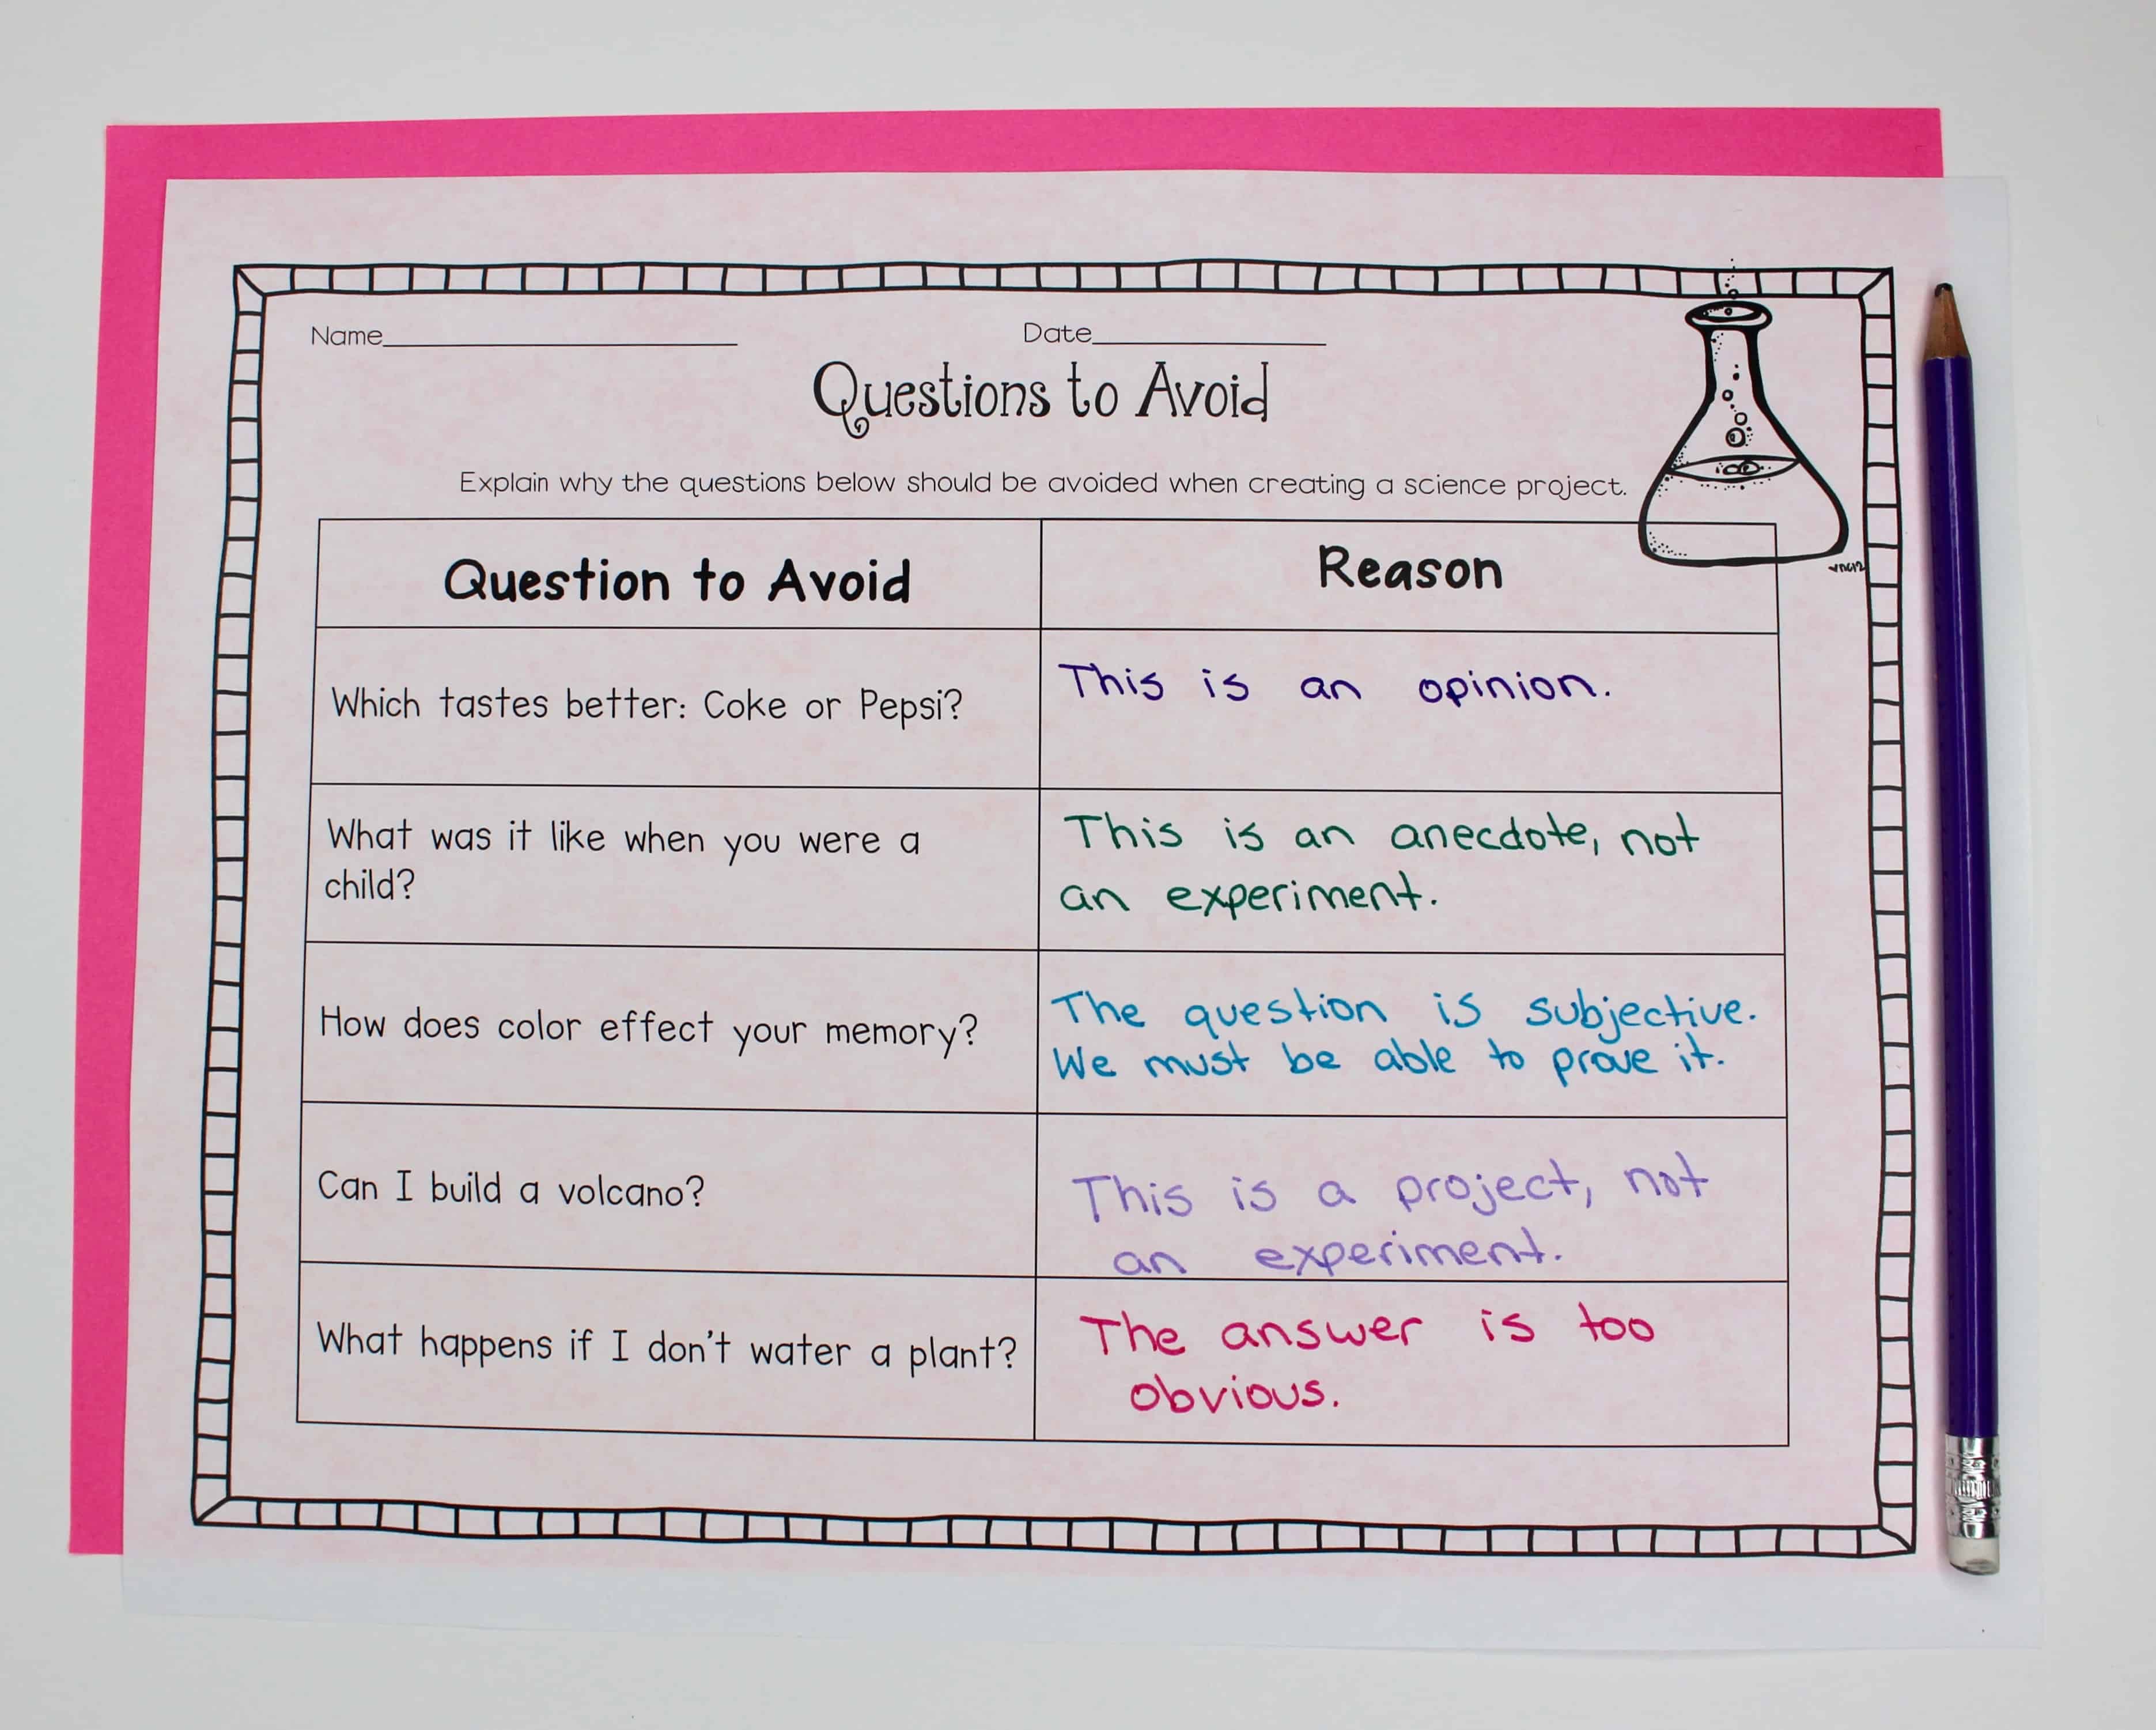 Name
Date
Questions to Avoid
Explain why the questions below should be avoided when creating a science project.
Question to Avoid
Reason
Which tastes better: Coke or Pepsi?
This is an opinion.
What was it like when you were a
child?
This is an anecdote, not
an experiment.
How does color effect your memory?
The question is subjective.
We must be able to prove it.
Can I build a volcano?
This is a project, not
an experiment.
What happens if I don't water a plant?
The answer is too
obvious.